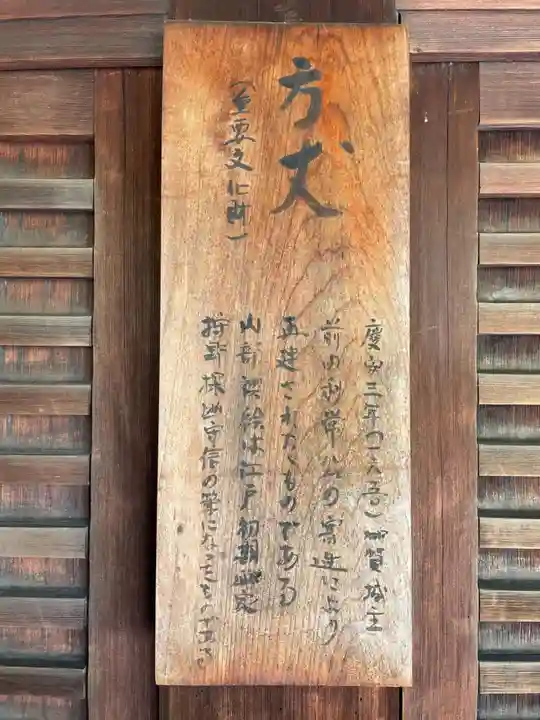 方丈
(重要文化財)
慶安三年(一六五〇)加賀城主
前田利常公の寄進により
再建されたものである
内部襖絵は江戸初期画家
狩野探幽守信の筆になるものである